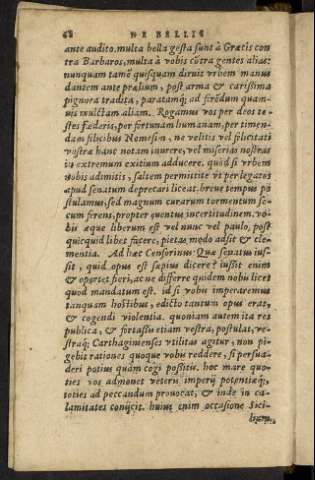 68 DE BELLIS
ante audito. multa bella gesta sunt à Græcis con
tra Barbaros, multa à vobis cōtra gentes alias:
nunquam tamē quisquam diruit vrbem manus
dantem ante prælium, post arma & carissima
pignora tradita, paratamq; ad ferēdum quam-
uis mulctam aliam. Rogamus vos per deos te-
stes fœderis, per fortunam humanam, per timen-
dam felicibus Nemesim, ne velitis vel felicitati
vestræ hanc notam inurere, vel miserias nostras
in extremum exitium adducere. quòd si vrbem
nobis adimitis, saltem permittite vt per legatos
apud senatum deprecari liceat. breue tempus po
stulamus, sed magnum curarum tormentum se-
cum ferens, propter euentus incertitudinem. vo-
bis æque liberum est vel nunc vel paulo, post
quicquid libet facere, pietas modo adsit & cle-
mentia. Ad hæc Censorinus: Quæ senatus ius-
sit, quid opus est sæpius dicere? iussit enim
& oportet fieri, ac ne differre quidem nobis licet
quod mandatum est. id si vobis imperaremus
tanquam hostibus, edicto tantum opus erat,
& cogendi violentia. quoniam autem ita res
publica, & fortassis etiam vestra, postulat, ve-
straq; Carthaginenses vtilitas agitur, non pi-
gebit rationes quoque vobis reddere, si persua-
deri potius quàm cogi possitis. hoc mare quo-
ties vos admonet veteris imperij potentiæq;,
toties ad peccandum prouocat, & inde in ca-
lamitates conijcit. huius enim occasione Sici-
liam